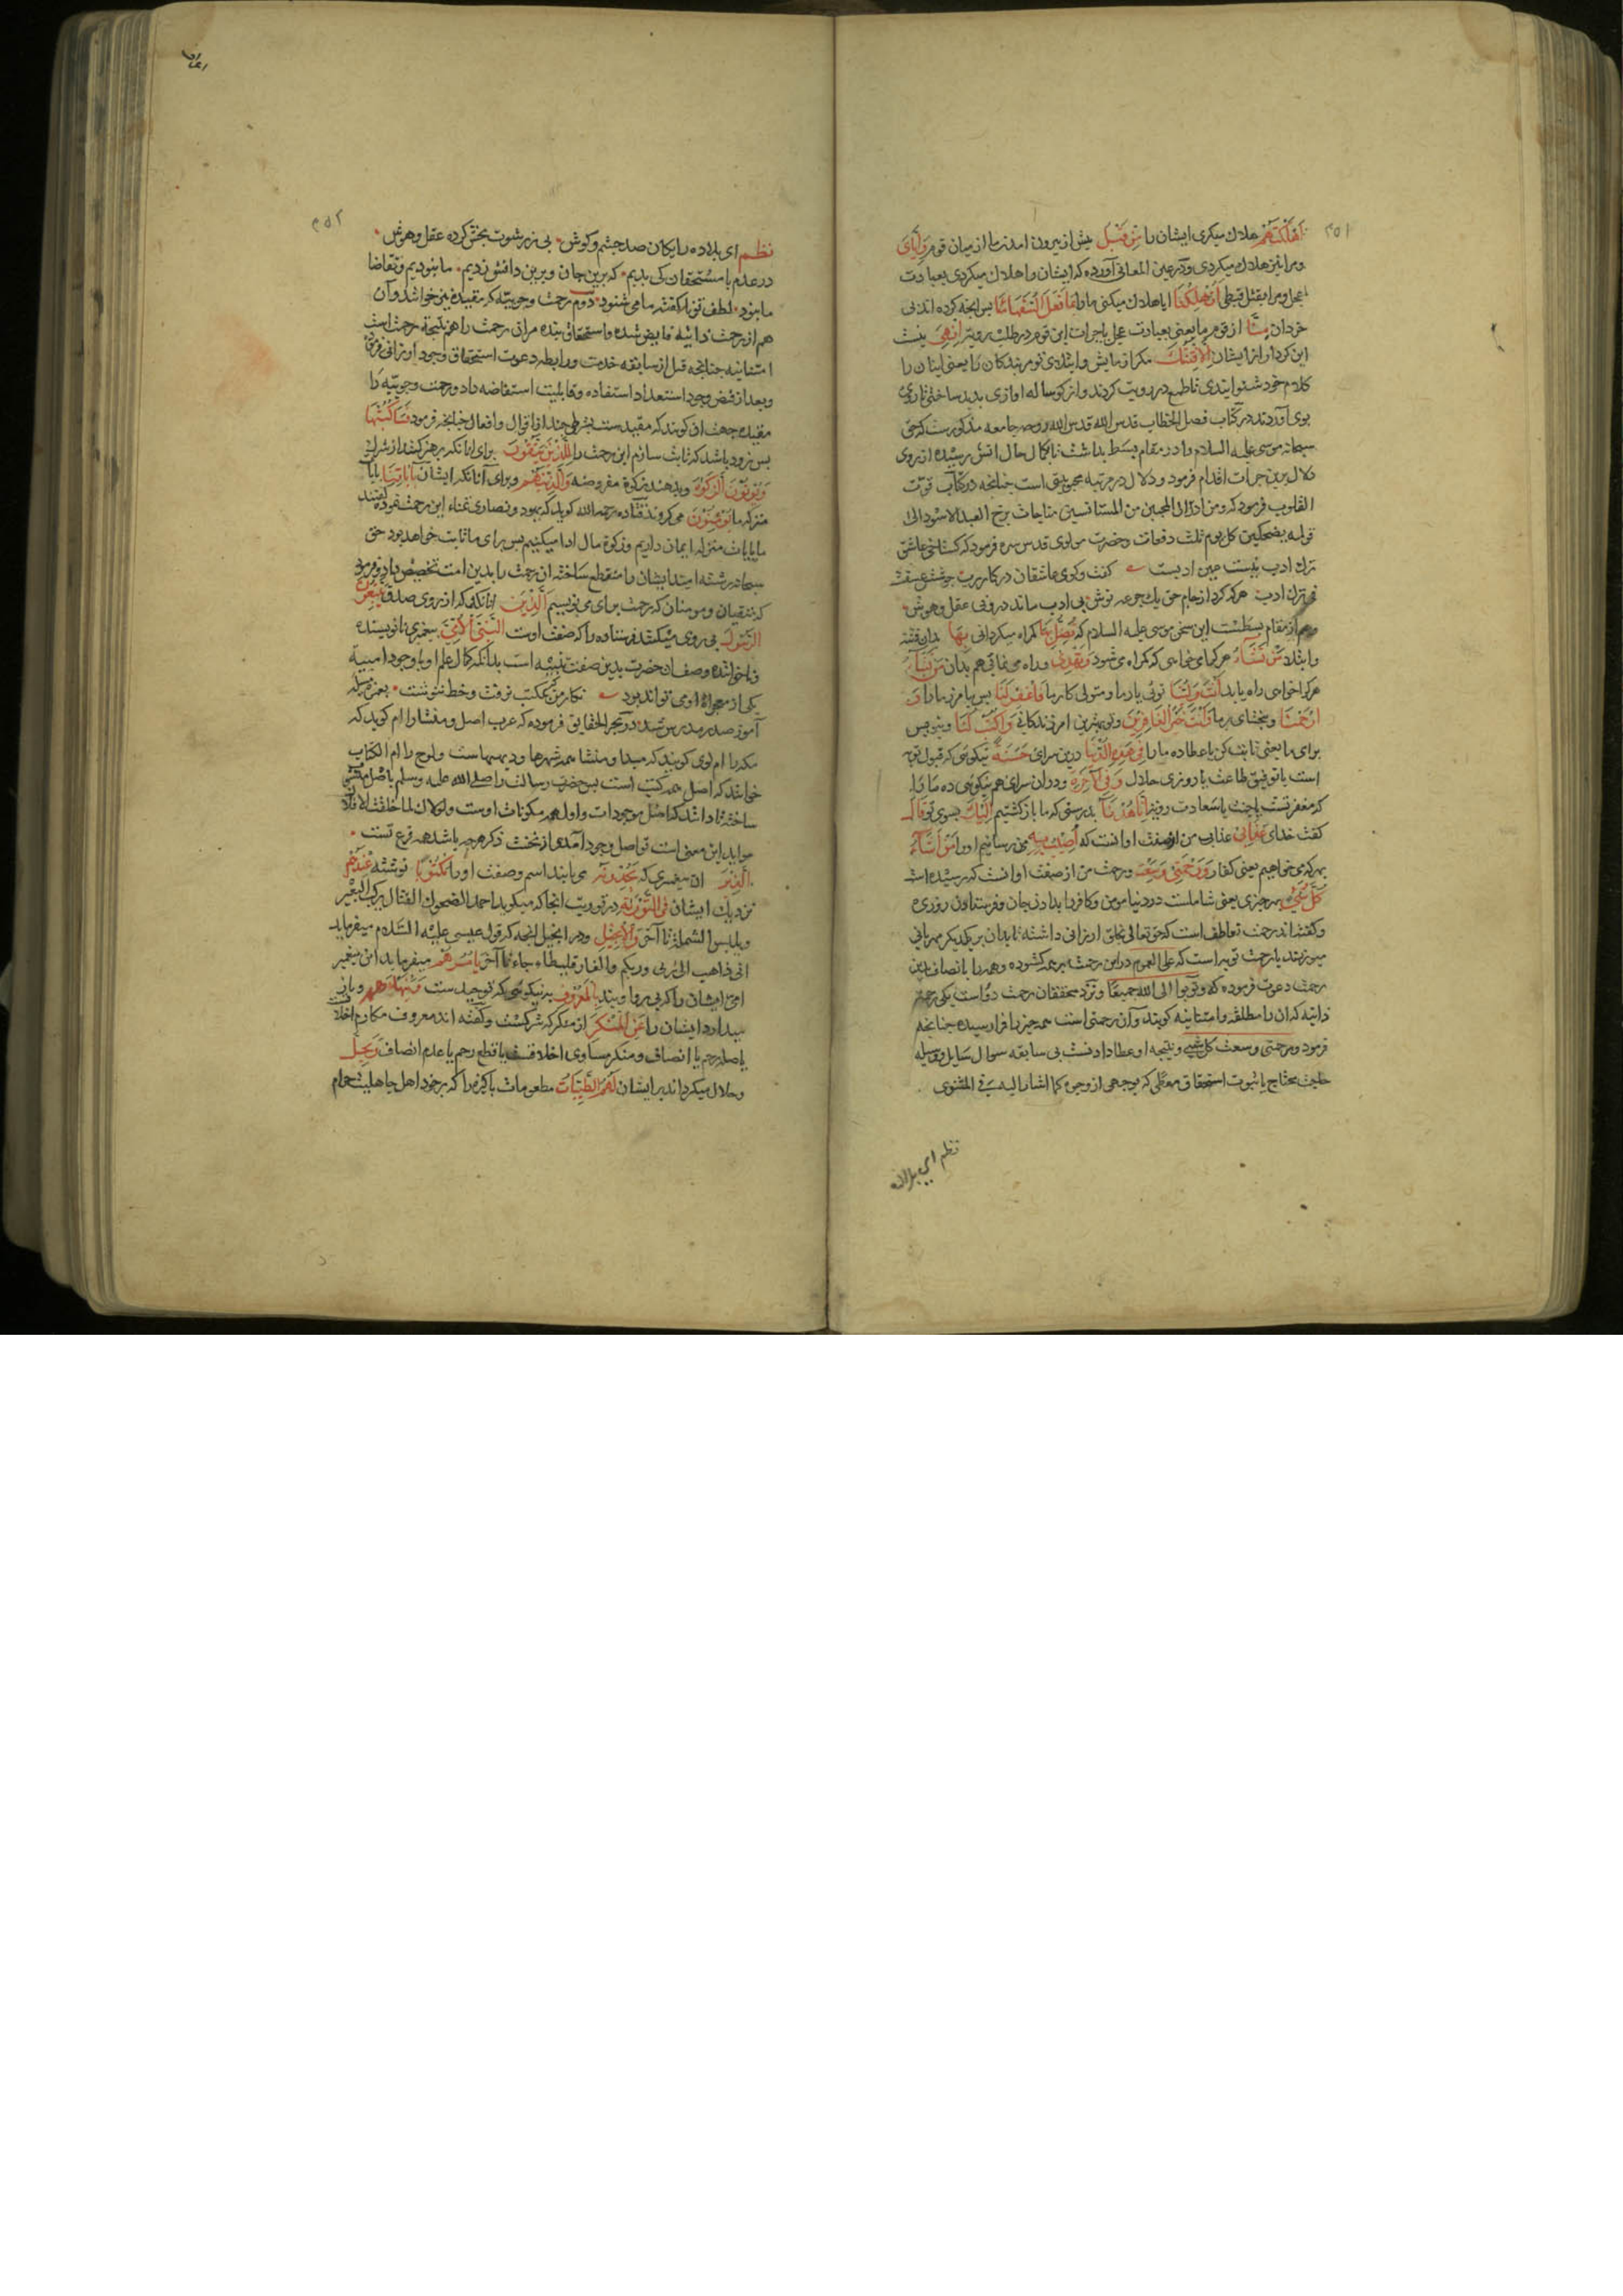 ۲۵۱
اَهْلَكْتَهُمْ هلاك میكردی ایشان را مِنْ قَبْلُ پیش از بیرون امدن ما از میان قوم وَاِیَّایَ
ومرا نیز هلاك میكردی ودر عین المعانی آورده كه ایشان را هلاك میكردی بعبادت
عجل ومرا بقتل قبطی اَتُهْلِكُنَا ایا هلاك میكنی ما را بِمَا فَعَلَ السُّفَهَاءُ بس آنچه كرده اند بی
خردان مِنَّا از قوم ما یعنی عبادت عجل یا جرات این قوم در طلب رویة اِنْ هِیَ نیست
این كردار از ایشان اِلَّا فِتْنَتُكَ مكر ازمایش وابتلای تو مر بندكان را یعنی اینان را
كلام خود شنوانیدی تا طمع در رویت كردند واز كوساله اوازی بدید ساختی تا روی
بوی آوردند در كتاب فصل الخطاب قدس الله روحه جامعه مذكورست كه حق
سبحانه موسی علیه السلام را در مقام بسط بداشت تا بكمال حال انس رسیده از روی
دلال برین جرأت اقدام فرمود ودلال در مرتبه محبوبیت است چنانچه در كتاب قوت
القلوب فرمود كه ومن ادلال المحبین من المستانسین مناجات برخ العبد الاسود الی
قوله یضحكنی كل یوم ثلث دفعات وحضرت مولوی قدس سره فرمود كه كستاخی عاشق
ترك ادب نیست عین ادبست كفت وكوی عاشقان در كار رب جوشش عشقست
نی ترك ادب هر كه كرد از جام حق یك جرعه نوش نی ادب ماند درو نی عقل وهوش
وهم از مقام بسطست این سخن موسی علیه السلام كه تُضِلُّ بِهَا كمراه میكردانی بِهَا بدان فتنه
وابتلا مَنْ تَشَاءُ هر كرا می خواهی كه كمراه می شود وَتَهْدِی وراه می نمائی هم بدان مَنْ تَشَاءُ
هر كرا خواهی راه یابد اَنْتَ وَلِیُّنَا توئی یار ما ومتولی كار ما فَاغْفِرْ لَنَا بس بیامرز ما را وَ
ارْحَمْنَا وببخشای بر ما وَاَنْتَ خَیْرُ الْغَافِرِینَ وتو بهترین امرزندكانی وَاكْتُبْ لَنَا وبنویس
برای ما یعنی ثابت كن یا عطا ده ما را فِی هٰذِهِ الدُّنْیَا درین سرای حَسَنَةً نیكوئی كه قبول توبه
است یا توفیق طاعت یا روزی حلال وَفِی الْآخِرَةِ ودر ان سرای هم نیكوئی ده ما را
كه مغفرتست یا جنت یا سعادت رویة اِنَّا هُدْنَا بدرستی كه ما باز كشتیم اِلَیْكَ بسوی تو قَالَ
كفت خدای عَذَابِی عذاب من از صفت او انست كه اُصِیبُ بِهِ می رسانیم او را مَنْ اَشَاءُ
بهر كه می خواهیم یعنی كفار وَرَحْمَتِی وَسِعَتْ ورحمت من از صفت او انست كه رسیده است
كُلَّ شَیْءٍ بهر چیزی یعنی شاملست در دنیا مومن وكافر را بدادن جان وفرستادن روزی
وكفته اند رحمت تعاطف است كه حق تعالی بخلق ارزانی داشته تا بدان بر یكدیكر مهربانی
میورزند یا رحمت توبه است كه علی العموم در این رحمت بر همه كشوده وهمه را بانصاف این
رحمت دعوت فرموده كه وتوبوا الی الله جمیعا ونزد محققان رحمت دو است یكی رحمت
ذاتیه كه ان را مطلقه وامتنانیه كویند وآن رحمتی است همه چیز را فرارسیده چنانچه
فرمود ورحمتی وسعت كل شیء ونتیجه او عطا دادنست بی سابقه سوال سایل ووسیله
حاجت محتاج یا ثبوت استحقاق معطی له بوجهی از وجوه كما اشار الیه فی المثنوی
نظم ای بداده
۲۵۲
نظم ای بداده رایكان صد چشم وكوش بی ز رشوت بخش كرده عقل وهوش
در عدم ما مستحقان كی بدیم كه برین جان وبرین دانش زدیم ما نبودیم وتقاضا
ما نبود لطف تو ناكفته ما می شنود دوم رحمت وجوبیه كه مقیده نیز خوانند وآن
هم از رحمت ذاتیه فایض شده واستحقاق بنده مر ان رحمت را هم نتیجه رحمت است
امتنانیه چنانچه قبل از سابقه خدمت ورابطه دعوت استحقاق وجود ارزانی فرمود
وبعد از فیض وجود استعداد استفاده وقابلیت استفاضه داد ورحمت وجوبیه را
مقیده جهت ان كویند كه مقیدست بشرطی چند از اقوال وافعال چنانچه فرمود فَسَاَكْتُبُهَا
بس زود باشد كه ثابت سازم این رحمت را لِلَّذِینَ یَتَّقُونَ برای انانكه پرهیز كنند از شرك
وَیُؤْتُونَ الزَّكٰوةَ وبدهند زكوة مفروضه وَالَّذِینَ هُمْ وبرای آنانكه ایشان بِاٰیَاتِنَا بایات
منزله ما یُؤْمِنُونَ می كروند قتاده رحمه الله كوید كه یهود ونصاری تمناء این رحمت نموده كفتند
ما بایات منزله ایمان داریم وزكوة مال ادا میكنیم بس برای ما ثابت خواهد بود حق
سبحانه رشته امید ایشان را منقطع ساخته ان رحمت را بدین امت تخصیص داد وفرمود
كه متقیان ومومنان كه رحمت برای می نویسیم اَلَّذِینَ انانكه كه از روی صدق یَتَّبِعُونَ
الرَّسُولَ پی روی میكنند فرستاده را كه صفت اوست النَّبِیَّ الْاُمِّیَّ پیغمبری نانویسنده
وناخوانده وصف ان حضرت بدین صفت تنبیه است بدانكه كمال علم او با وجود امییة
یكی از معجزاة او می تواند بود نكار من كه بمكتب نرفت وخط ننوشت بغمزه مسئله
آموز صد مدرس شد در بحر الحقایق فرموده كه عرب اصل ومنشا را ام كوید كه
مكه را ام القری كویند كه مبدا ومنشا همه شهرها ودیههاست ولوح را ام الكتاب
خوانند كه اصل همه كتب است بس حضرت رسالت را صلی الله علیه وسلم باصل منتهی
ساخته تا دانند كه اصل موجودات واول همه مكونات اوست ولولاك لما خلقت الافلاك
مواید این معنی است تو اصل وجود آمدی از نخست دكر هر چه باشد همه فرع تست
اَلَّذِی ان پیغمبری كه یَجِدُونَهُ می یابند اسم وصفت او را مَكْتُوبًا نوشته عِنْدَهُمْ
نزدیك ایشان فِی التَّوْرٰیةِ در توریت انجا كه میكوید احمد الضحوك القتال یركب البعیر
ویلبس الشملة تا آخر وَالْاِنْجِیلِ ودر انجیل انجه كه قول عیسی علیه السلام میفرماید
انی ذاهب الی ربی وربكم والفارقلیطاء جاء تا آخر یَاْمُرُهُمْ میفرماید این پیغمبر
امی ایشان را كه پی روا ویند بِالْمَعْرُوفِ بر نیكوئی كه توحیدست وَیَنْهٰیهُمْ وباز
میدارد ایشان را عَنِ الْمُنْكَرِ از منكر كه شركست وكفته اند معروف مكارم اخلاقست
یا صله رحم یا انصاف ومنكر مساوی اخلاقست یا قطع رحم یا عدم انصاف وَیُحِلُّ
وحلال میكرداند بر ایشان لَهُمُ الطَّیِّبَاتِ مطعومات پاكیزه را كه بر خود اهل جاهلیت حرام